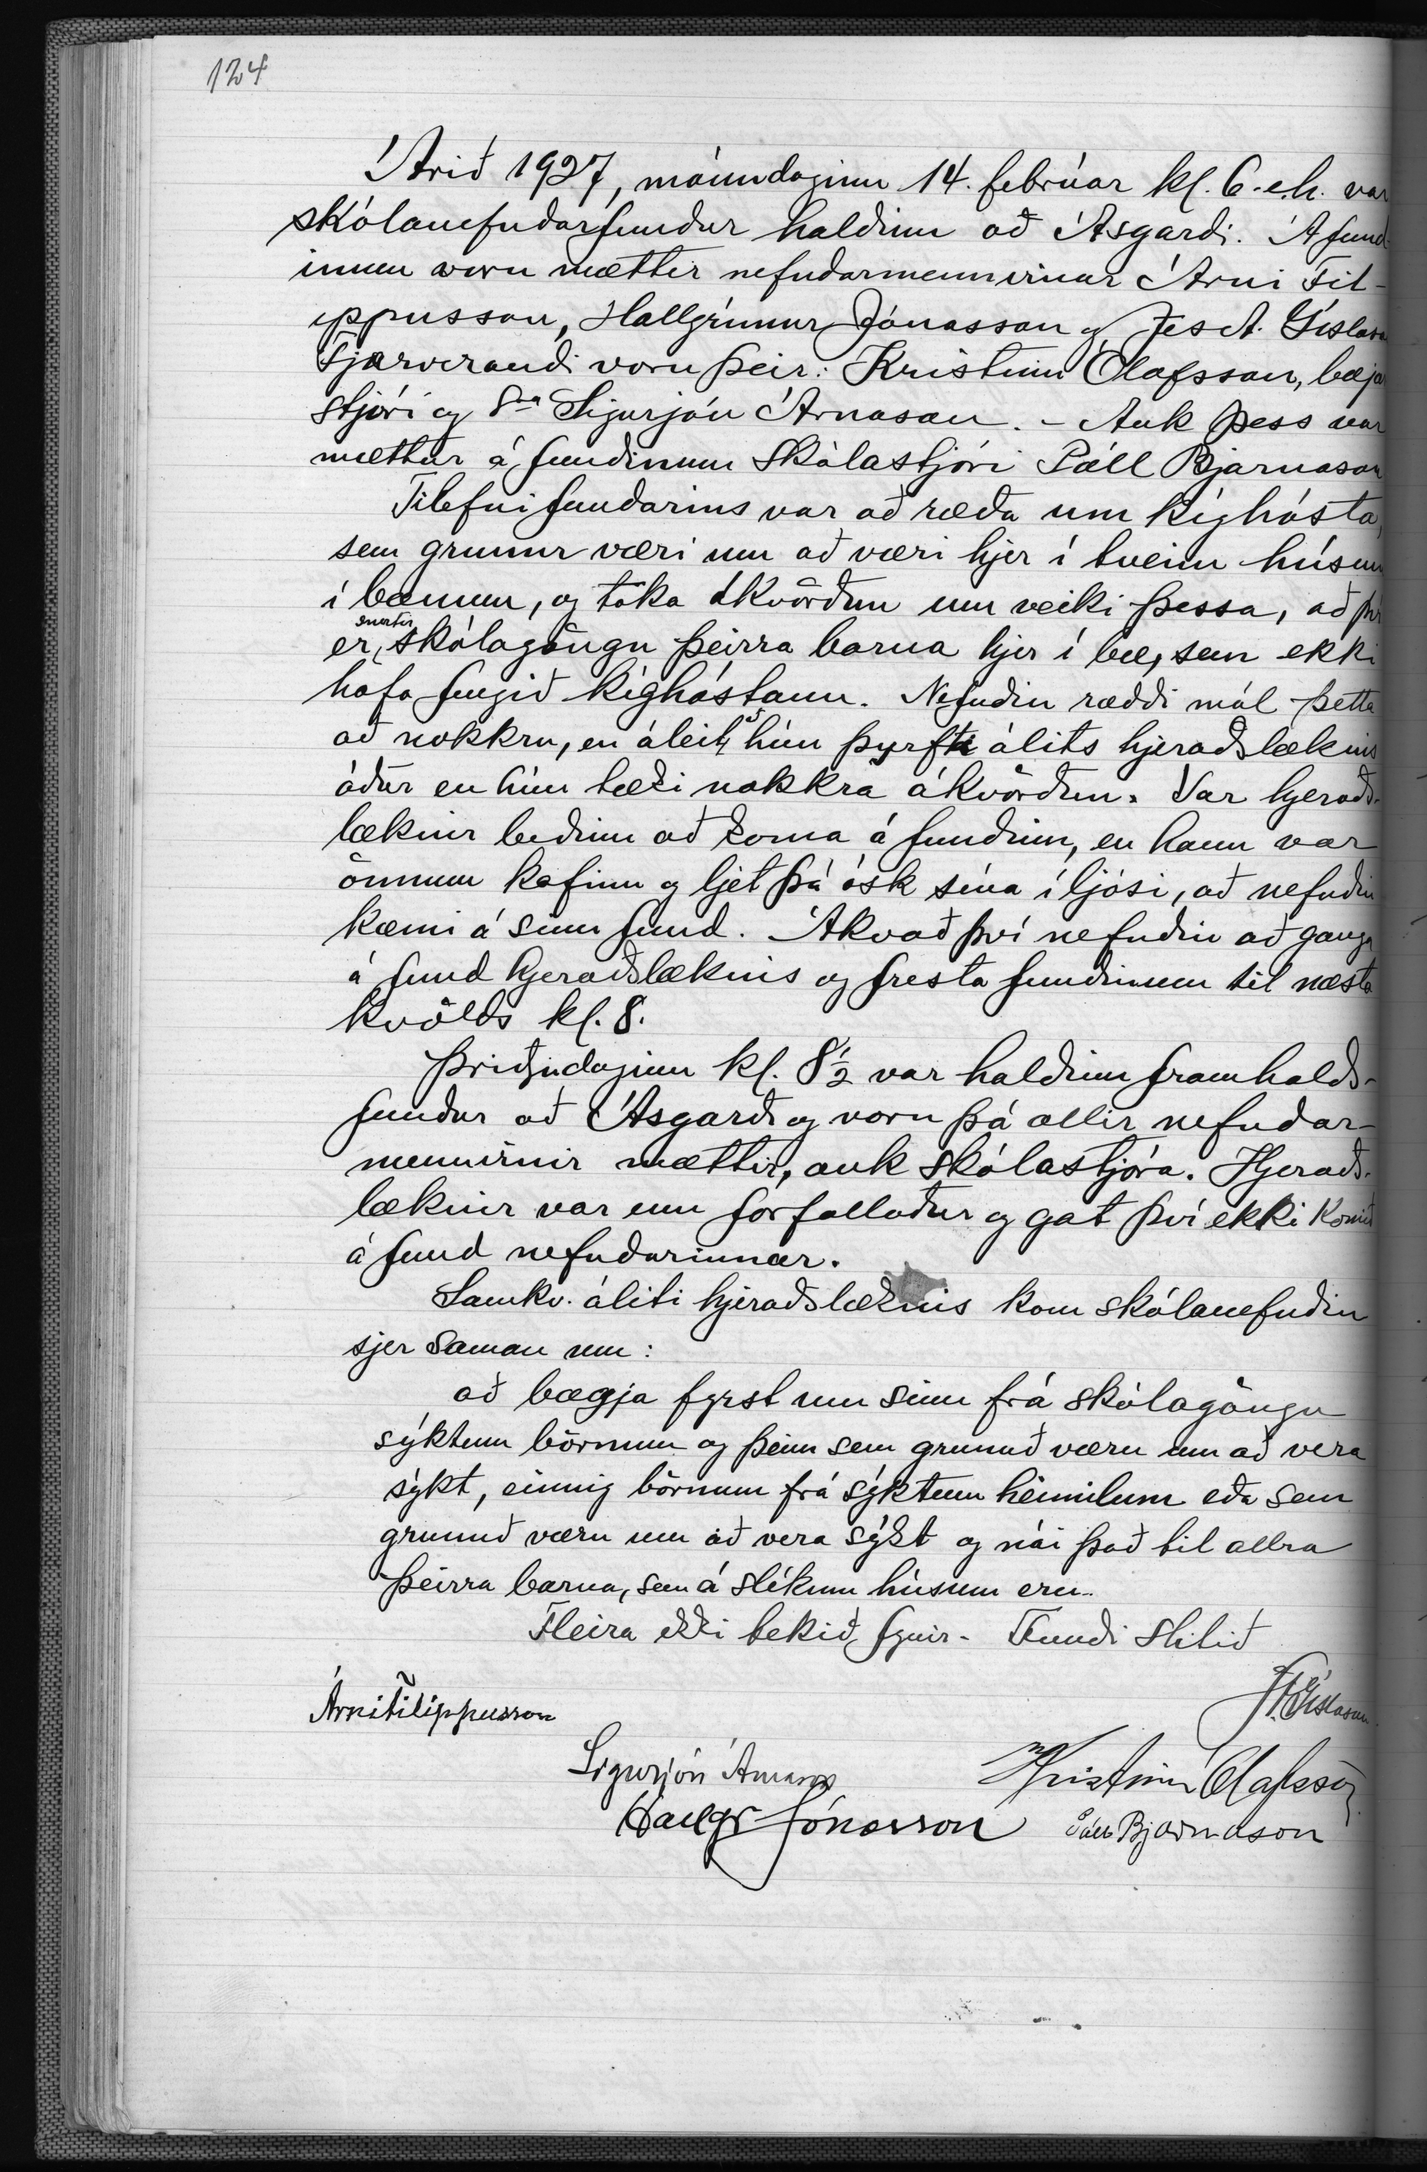 124
Árið 1927, mánudaginn 14. febrúar kl. 6. e.h. var
skólanefndarfundur haldinn að Ásgarði. Á fund-
inum voru mættir nefndarmennirnir Árni Fil-
ippusson, Hallgrímur Jónasson og Jes A. Gíslason
Fjarverandi voru þeir: Kristinn Ólafsson, bæjar
stjóri og Sra Sigurjón Árnason. - Auk þess var
mættur á fundinum skólastjóri Páll Bjarnason
Tilefni fundarins var að ræða um kíghósta,
sem grunur væri um að væri hjer í tveim húsum
í bænum, og taka ákvörðun um veiki þessa, að því
er snertir skólagöngu þeirra barna hjer í bæ, sem ekki
hafa fengið kíghóstann. Nefndin ræddi mál þetta
að nokkru, en áleit að hún þyrfti álits hjeraðslæknis
áður en hún tæki nokkra ákvörðun. Var hjeraðs-
læknir beðinn að koma á fundinn, en hann var
önnum kafinn og ljet þá ósk sína í ljósi, að nefndin
kæmi á sinn fund. Ákvað því nefndin að ganga
á fund hjeraðslæknis og fresta fundinum til næsta
kvölds kl. 8.
Þriðjudaginn kl. 8 1/2 var haldinn framhalds-
fundur að Ásgarði og voru þá allir nefndar-
mennirnir mættir, auk skólastjóra. Hjeraðs-
læknir var enn forfallaður og gat því ekki komið
á fund nefndarinnar.
Samkv. áliti hjeraðslæknis kom skólanefndin
sjer saman um:
að bægja fyrst um sinn frá skólagöngu
sýktum börnum og þeim sem grunuð væru um að vera
sýkt, einnig börnum frá sýktum heimilum eða sem
grunuð væru um að vera sýkt og nái það til allra
þeirra barna, sem á slíkum húsum eru.
Fleira ekki tekið fyrir - Fundi slitið
Árni Filippusson
J.A. Gíslason.
Sigurjón Árnason
Kristinn Ólafsson
Hallgr Jónasson
Páll Bjarnason